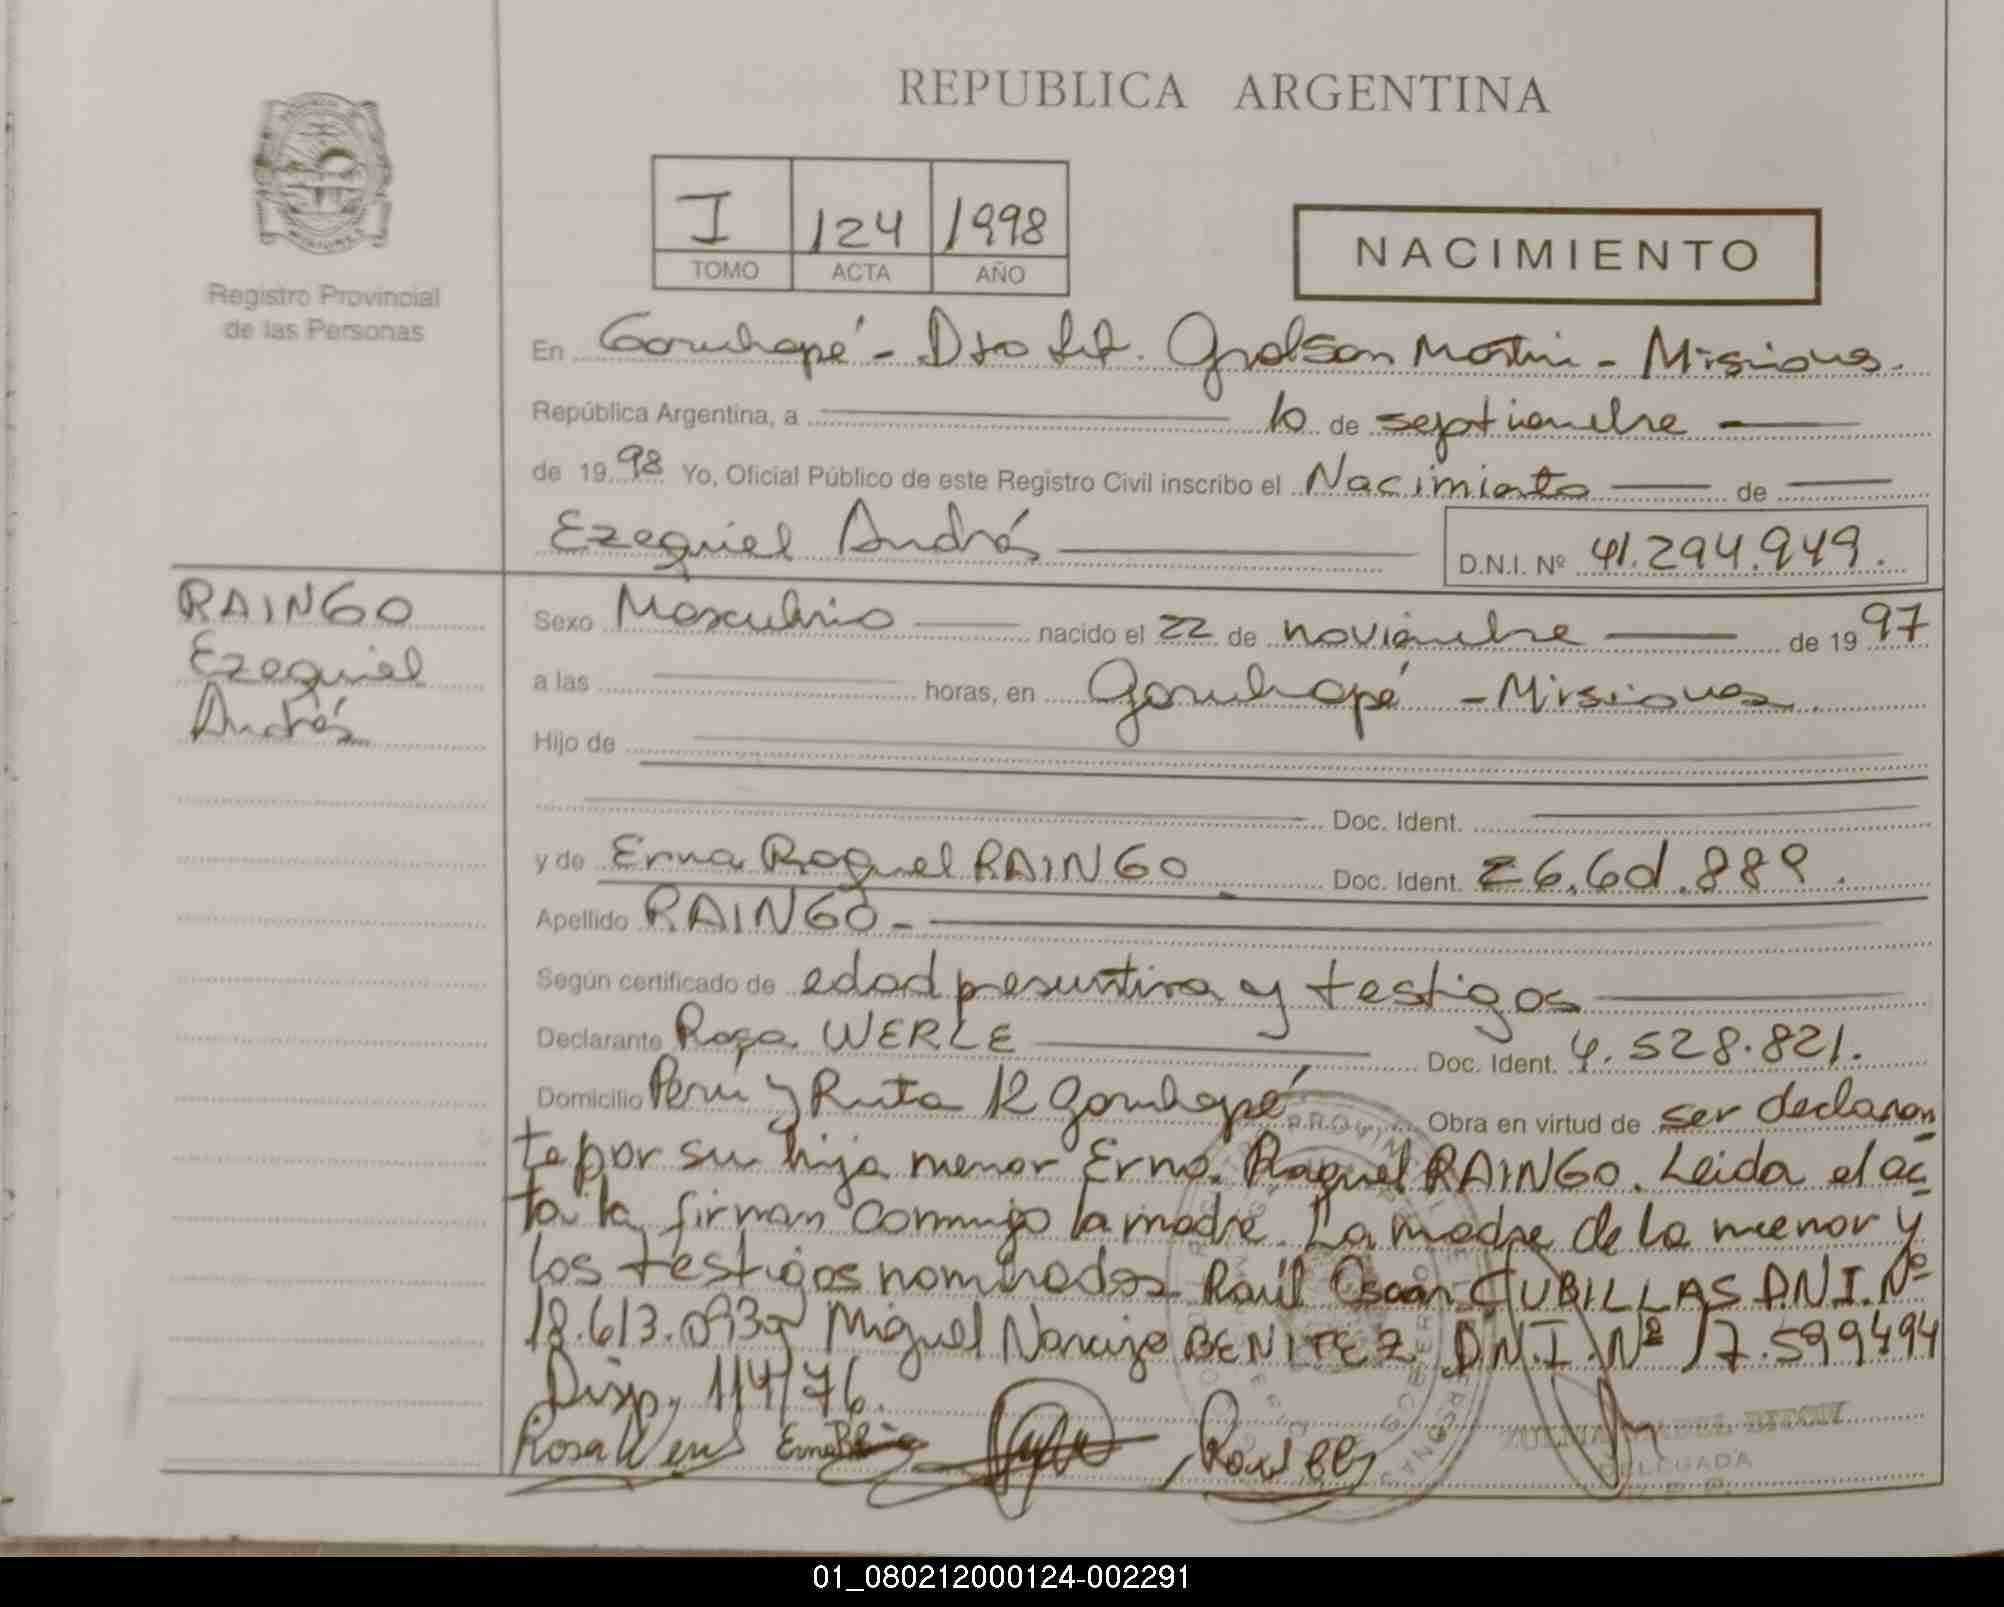 REPUBLICA ARGENTINA
Registro Provincial
de las Personas
I 124 1998
TOMO ACTA AÑO
NACIMIENTO
En Garuhapé - Dto Lib. Gral San Martín - Misiones.
República Argentina, a 10 de septiembre
de 19 98 Yo, Oficial Público de este Registro Civil inscribo el Nacimiento de
Ezequiel Andrés D.N.I. Nº 41.294.949.
RAINGO
Ezequiel
Andrés
Sexo Masculino nacido el 22 de noviembre de 19 97
a las horas, en Garuhapé - Misiones.
Hijo de
Doc. Ident.
y de Erna Raquel RAINGO Doc. Ident. 26.601.889.
Apellido RAINGO -
Según certificado de edad presuntiva y testigos
Declarante Rosa WERLE Doc. Ident. 4.528.821.
Domicilio Perú y Ruta 12 Garuhapé Obra en virtud de ser declaran
te por su hija menor Erna Raquel RAINGO. Leida el ac
ta la firman conmigo la madre. La madre de la menor y
los testigos nombrados Raúl Oscar CUBILLAS D.N.I. Nº
18.613.093 y Miguel Narcizo BENITEZ D.N.I. Nº 17.599494
Disp. 114/76.
Rosa Werle Erna
DELEGADA
01_080212000124-002291